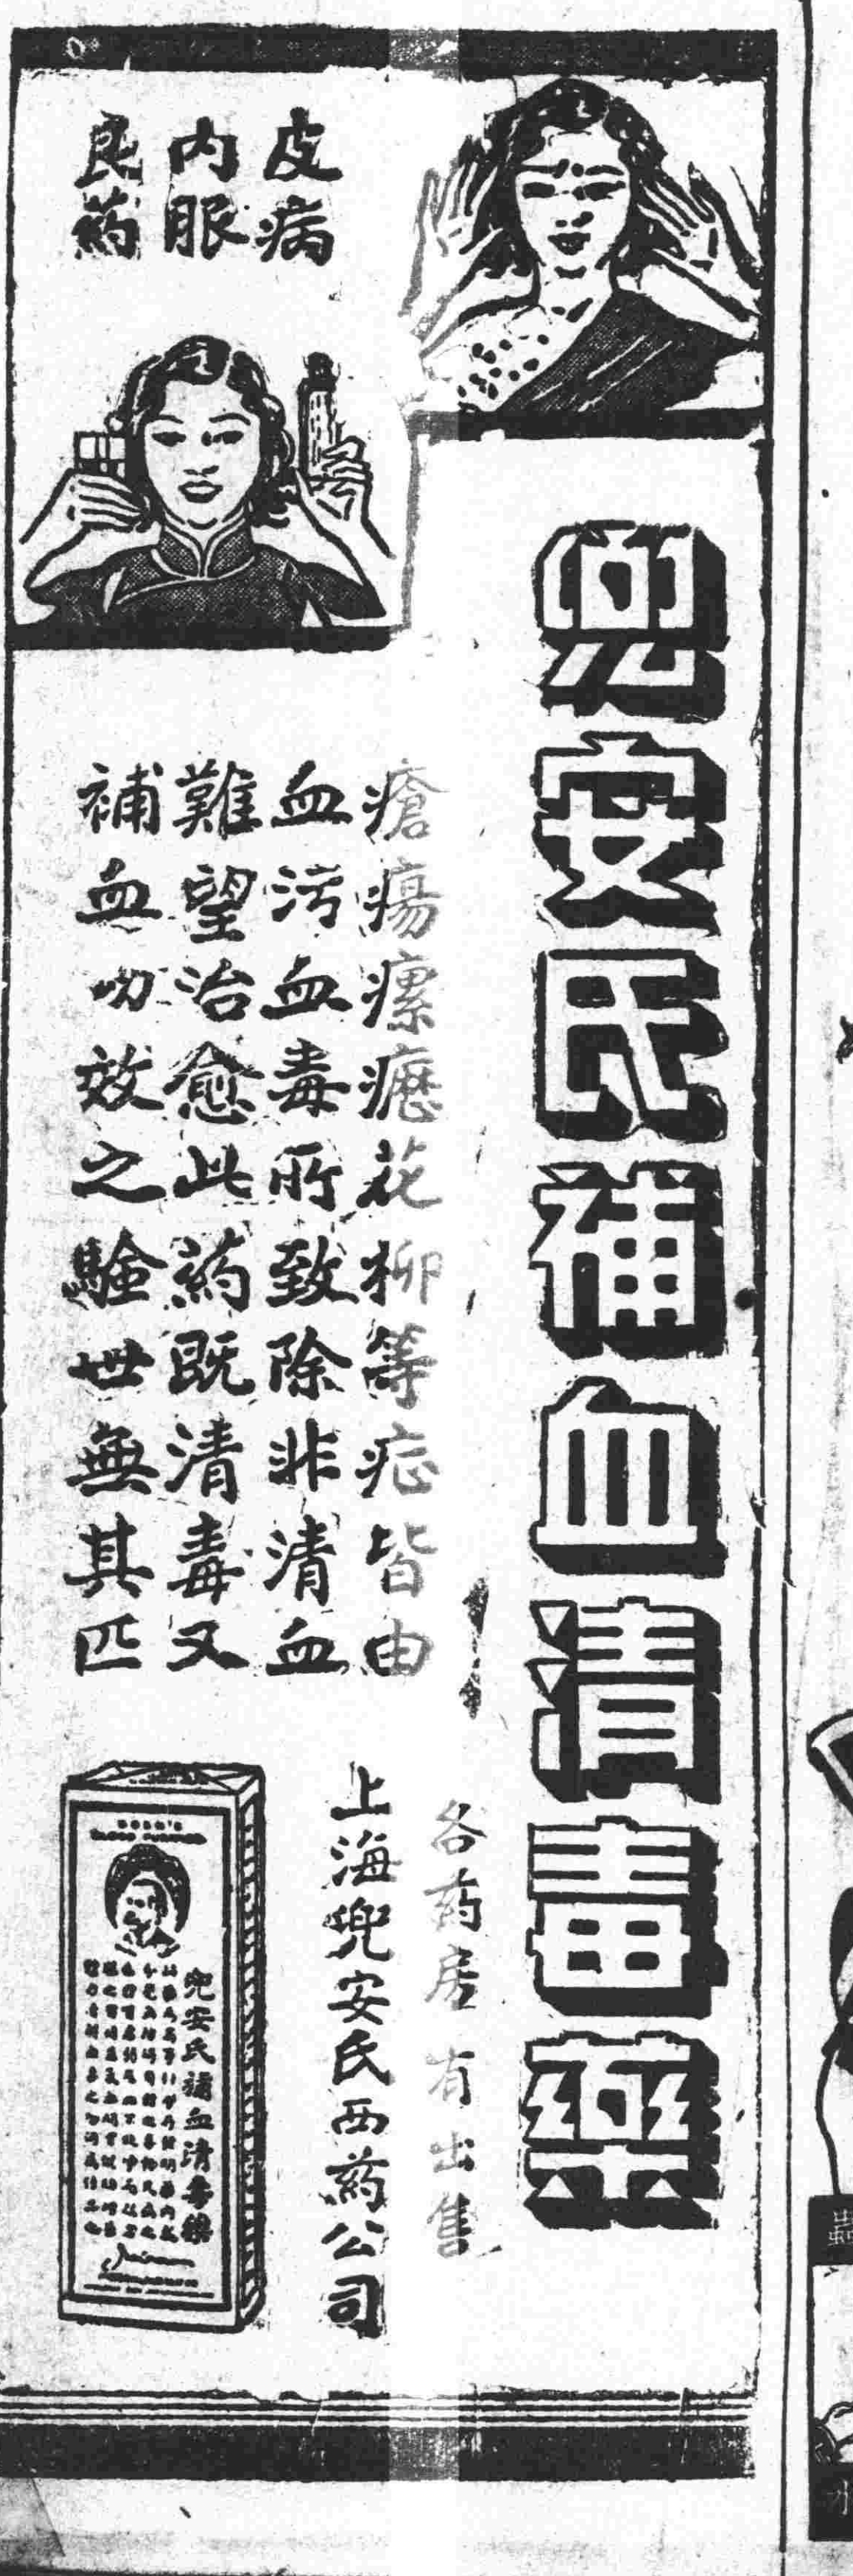 兜安氏補血清毒藥
皮病
内服
良葯
瘡瘍瘰癧花柳等症皆由
血污血毒所致除非清血
難望治愈此葯既清毒又
補血功效之驗世無其匹
各葯房有出售
上海兜安氏西葯公司
兜安氏補血清毒藥